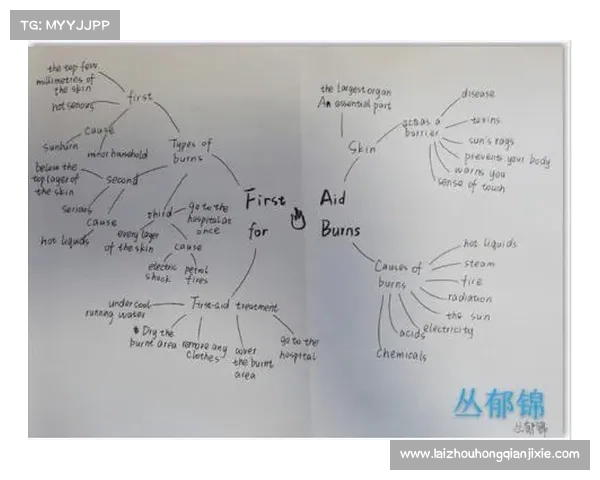 TG: MYYJJPP
the top few
millimetres of
the skin
not serious
first
cause
sunburn
minor household
Types of
burns
below the
top layer of
the skin
second
serious
cause
hot liquids
third
go to the
hospital at
once
every layer
of the skin
cause
electric
shock
petrol
fires
First Aid
for Burns
the largest organ
An essential part
Skin
acts as a
barrier
disease
toxins
sun's rags
prevents your body
warns you
sense of touch
Causes of
burns
hot liquids
steam
fire
radiation
the sun
electricity
acids
chemicals
First-aid treatment
under cool
running water
Dry the
burnt area
remove any
clothes
cover
the burnt
area
go to the
hospital
丛郁锦
丛郁锦
www.laizhouhongqianjixie.com